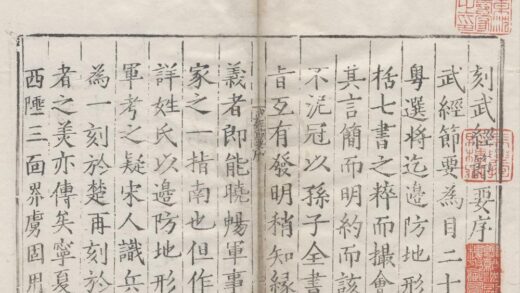 刻武經節要序
武經節要為目二十
粤選將迄邊防地形
括七書之粹而撮會
其言簡而明約而該
不泥冠以孫子全書
旨互有發明稍知緣
義者即能曉暢軍事
家之一指南也但作
詳姓氏以邊防地形
軍考之疑宋人識兵
為一刻於楚再刻於
者之羙亦傳矣寧夏
西陲三面界虜固用